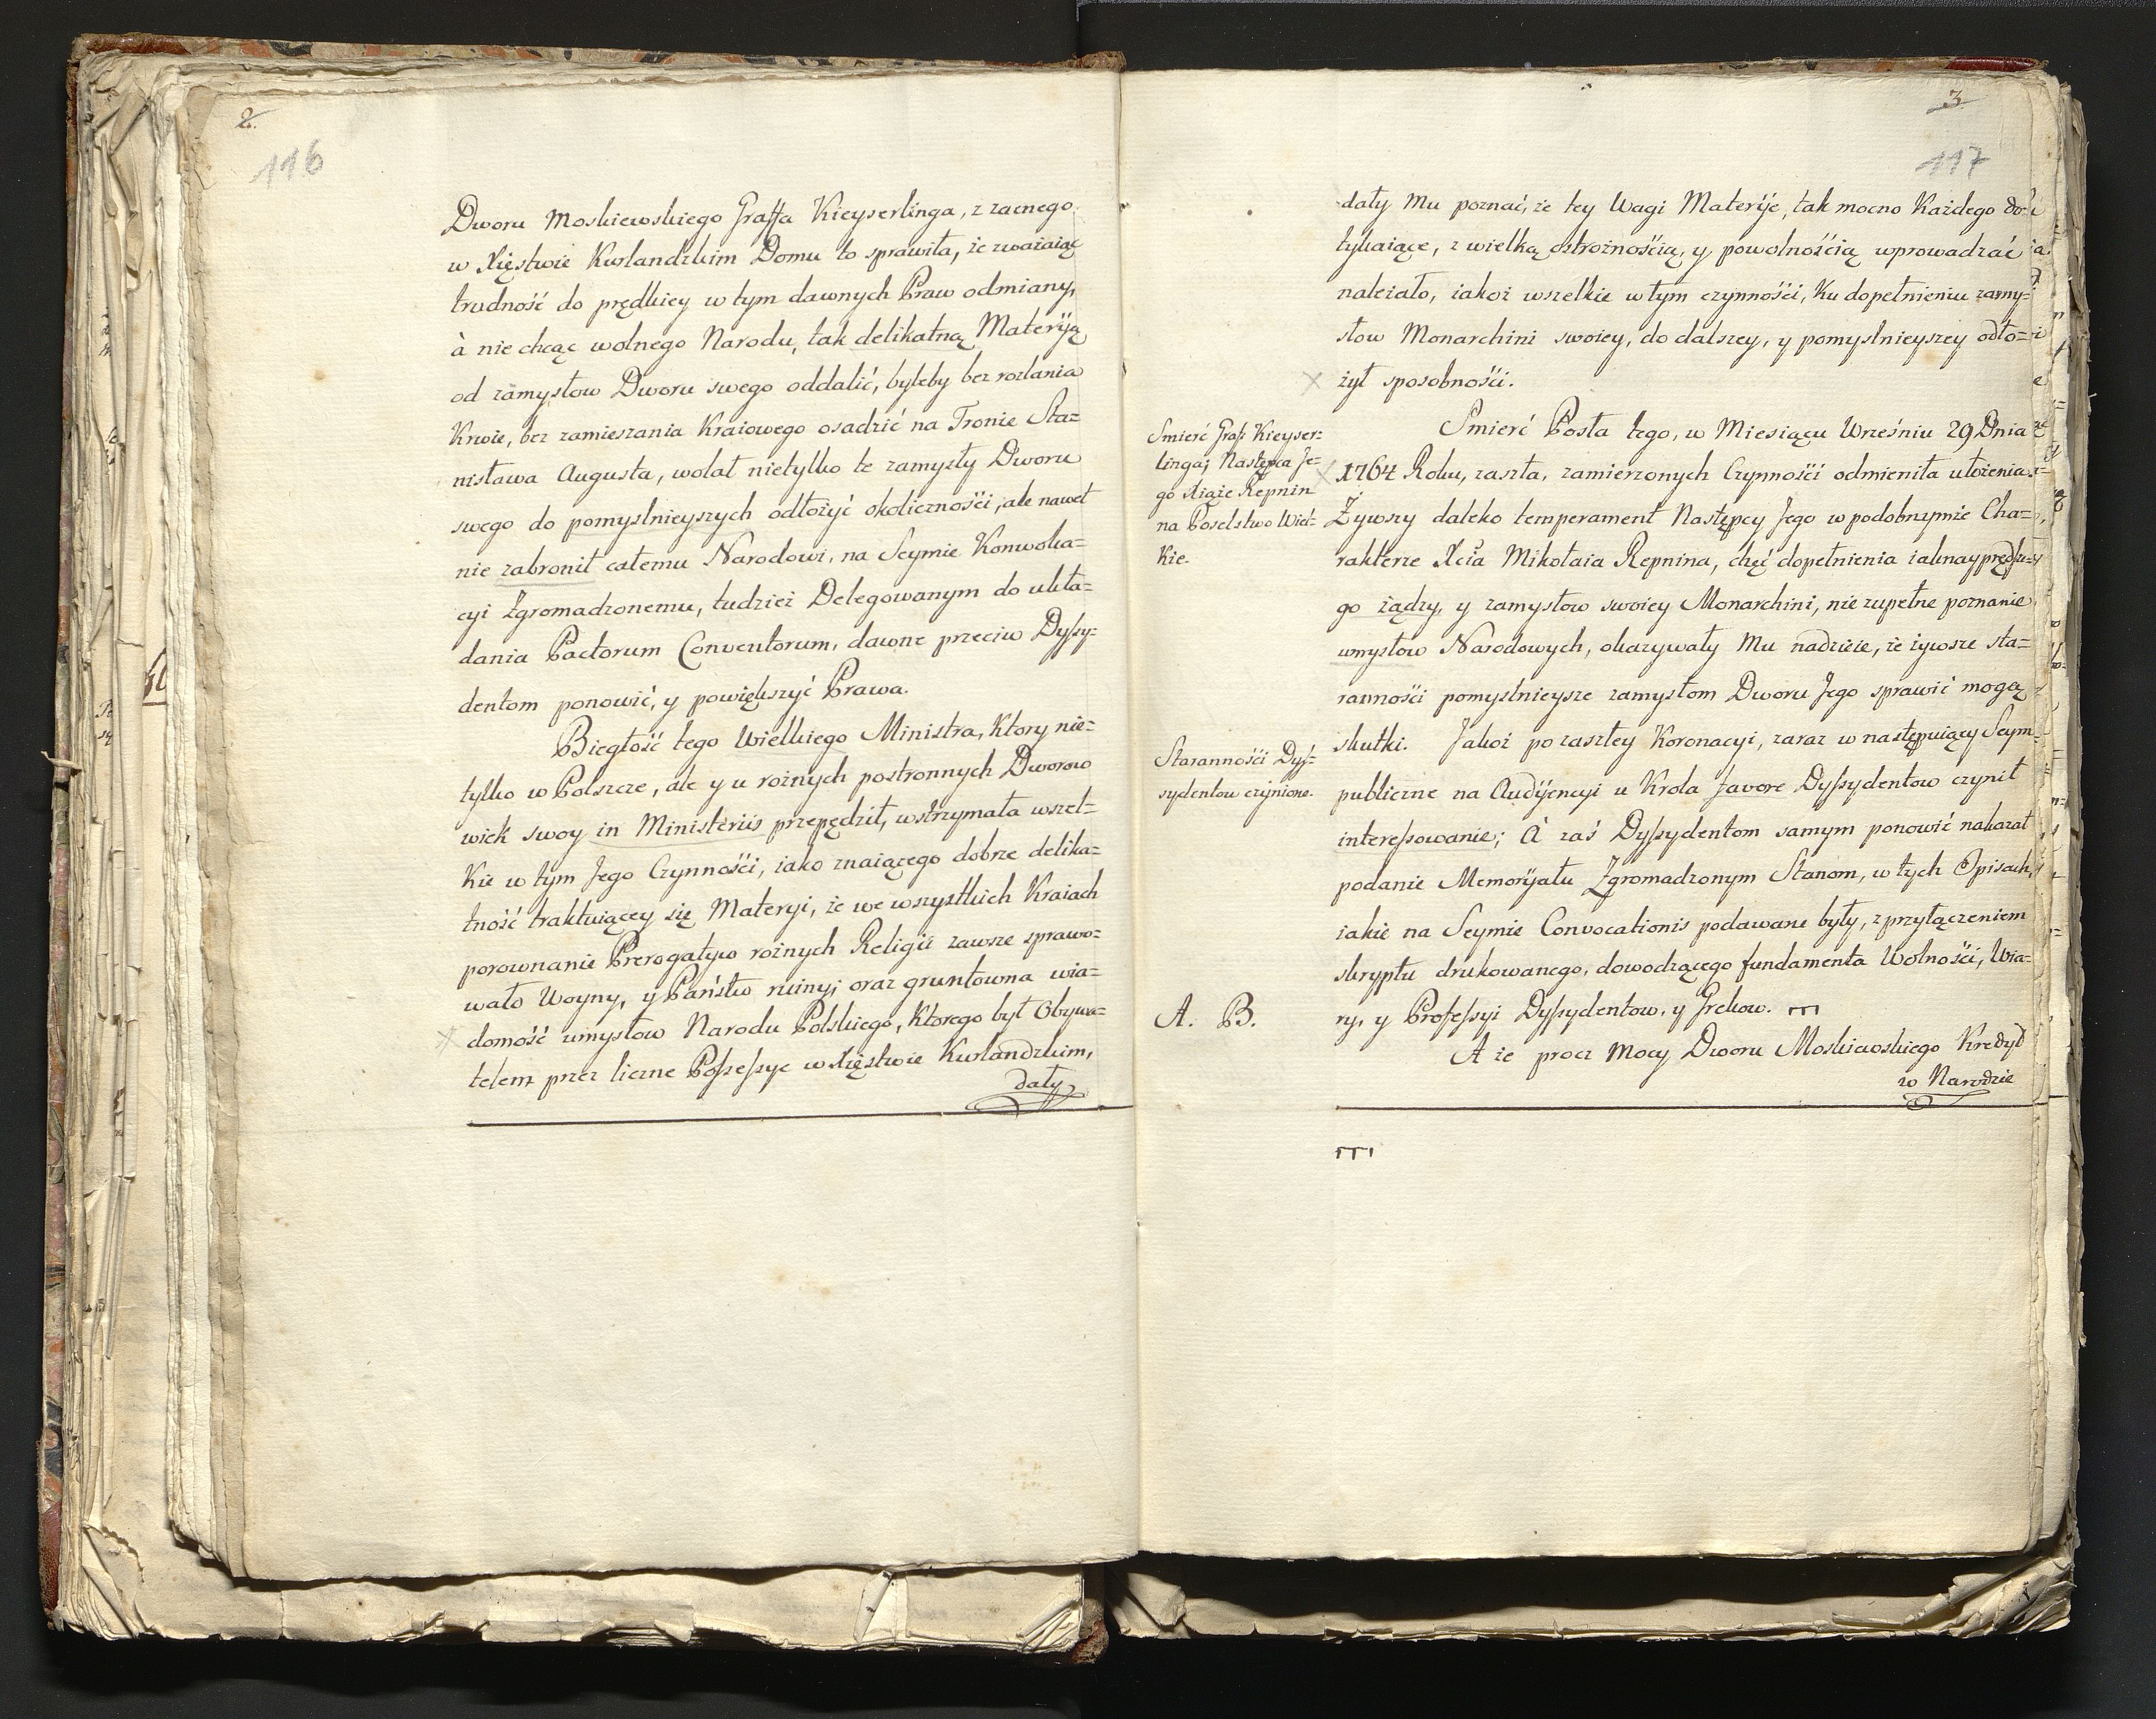 2.
116
Dworu Moskiewskiego Graffa Kieyserlinga, z zacnego
w Xięstwie Kurlandzkim Domu to sprawiła, że zważaiąc
trudność do prędkiey w tym dawnych Praw odmiany,
à nie chcąc wolnego Narodu, tak delikatną Materyą
od zamysłow Dworu swego oddalić, byleby bez rozlania
Krwie, bez zamieszania Kraiowego osadzić na Tronie Sta=
nisława Augusta, wolał nietylko te zamysły Dworu
swego do pomyslnieyszych odłożyć okoliczności, ale nawet
nie zabronił całemu Narodowi, na Seymie Konwoka=
cyi Zgromadzonemu, tudzież Delegowanym do ukła=
dania Pactorum Conventorum, dawne przeciw Dyssy=
dentom ponowić, y powiększyć Prawa.
Biegłość tego Wielkiego Ministra, Ktory nie=
tylko w Polszcze, ale y u rożnych postronnych Dworow
wiek swoy in Ministeriis przepędził, wstrzymała wszel=
Kie w tym Jego Czynności, iako znaiącego dobrze delika=
tność traktuiącey się Materyi, że we wszystkich Kraiach
porownanie Prerogatyw rożnych Religii zawsze sprawo=
wało Woyny, y Państw ruiny; oraz gruntowna wia=
domość umysłow Narodu Polskiego, Ktorego był Obywa=
telem przez liczne Possessye w Xięstwie Kurlandzkim,
dały
3
117
dały Mu poznać, że tey Wagi Materye, tak mocno Każdego do=
tykaiące, z wielką ostrożnością, y powolnością wprowadzać
należało, iakoż wszelkie w tym czynności, Ku dopełnieniu zamy=
słow Monarchini swoiey, do dalszey, y pomyslnieyszey odło=
żył sposobności.
Smierć Graf: Kieyser=
linga; Następca Je=
go Xiąże Repnin
na Poselstwo Wiel=
Kie.
Smierć Posła tego, w Miesiącu Wrześniu 29 Dnia
1764 Roku, zaszła, zamierzonych Czynności odmieniła ułożenia.
Żywszy daleko temperament Następcy Jego w podobnymże Cha=
rakterze Xcia Mikołaia Repnina, chęć dopełnienia iaknayprędsze=
go żądzy, y zamysłow swoiey Monarchini, nie zupełne poznanie
umysłow Narodowych, okazywały Mu nadzieie, że żywsze sta=
ranności pomyslnieysze zamysłom Dworu Jego sprawić mogą
skutki. Jakoż po zaszłey Koronacyi, zaraz w następuiący Seym
Staranności Dys=
sydentow czynione.
publiczne na Audyencyi u Krola Favore Dyssydentow czynił
interessowanie; À zaś Dyssydentom samym ponowić nakazał
podanie Memoryału Zgromadzonym Stanom, w tych Opisach,
iakie na Seymie Convocationis podawane były, z przyłączeniem
skryptu drukowanego, dowodzącego fundamenta Wolności, Wia=
A. B.
ry, y Professyi Dyssydentow, y Grekow.
A że procz Mocy Dworu Moskiewskiego Kredyt
w Narodzie